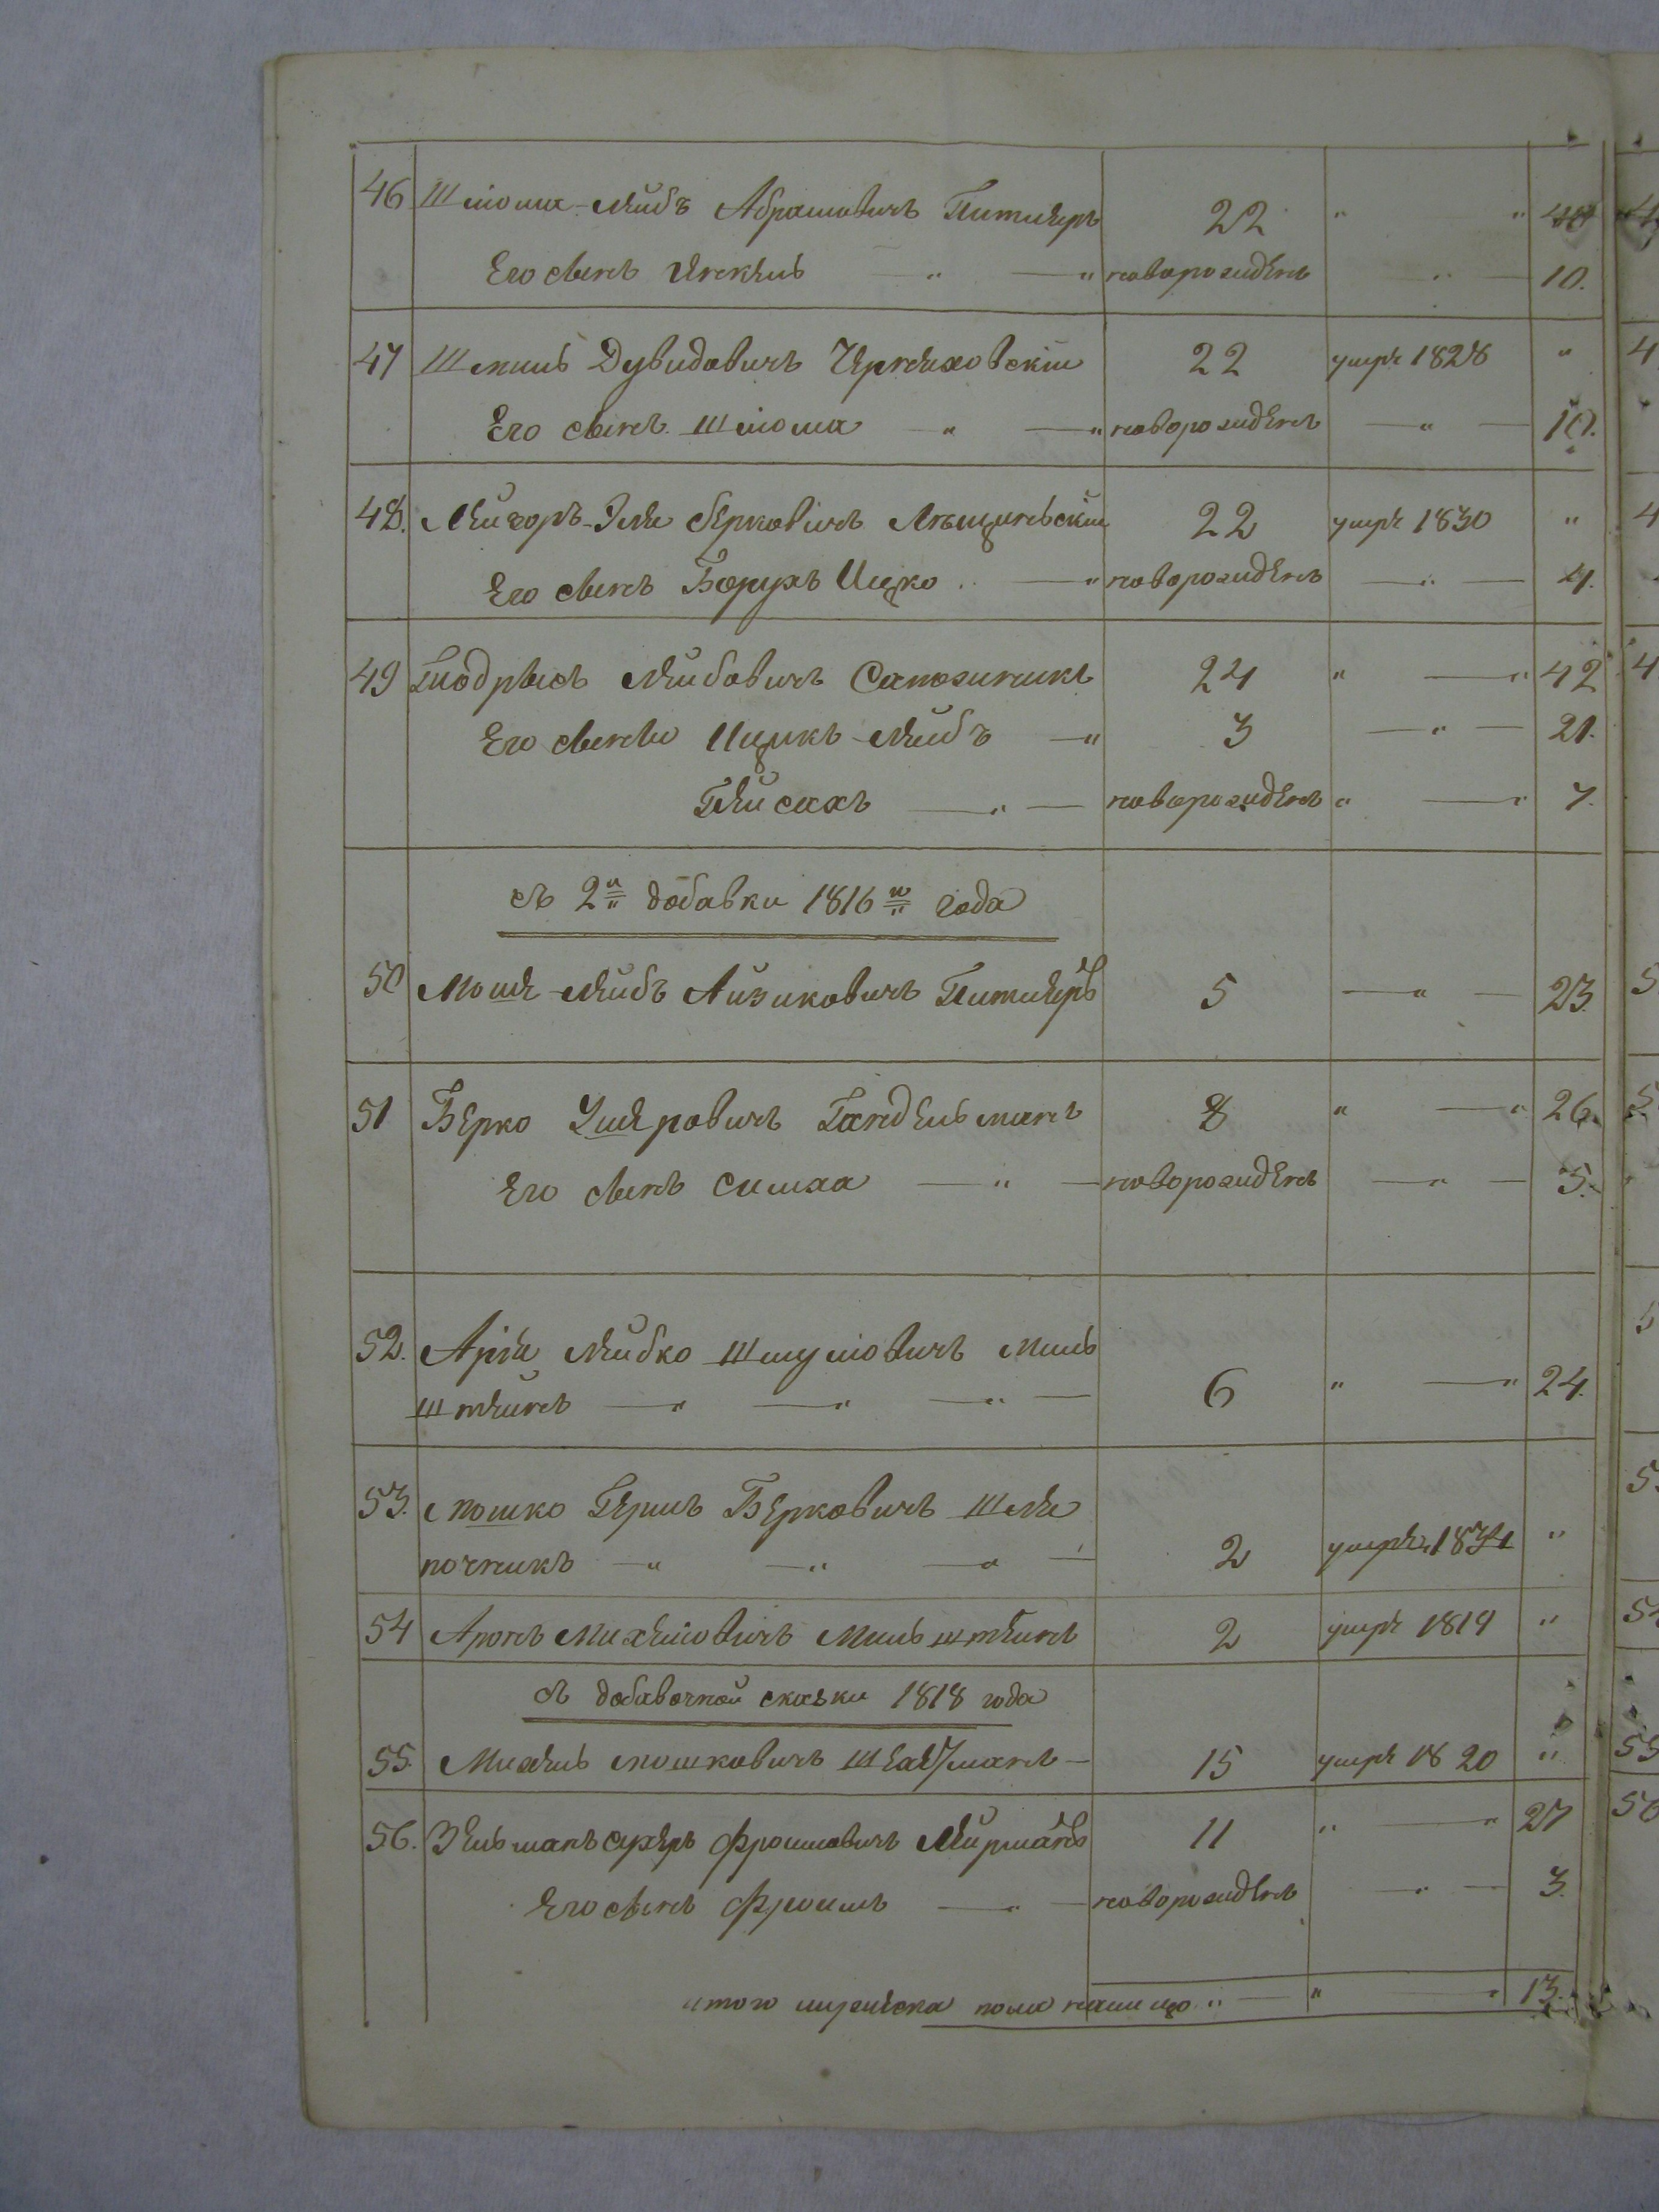 46 Шлiома-Лейбъ Абрамовичъ Питлеръ 22 " " 40
Его сынъ Янкель " " новорожденъ " 10.
47 Шмиль Дувидовичъ Черняховскiй 22 умре 1828 "
Его сынъ Шлiома " " новорожденъ " 10.
48. Лейзоръ-Эле Берковичъ Лещинскiй 22 умре 1830 "
Его сынъ Борухъ Ицко " новорожденъ " 4.
49 Тодрысъ Лейбовичъ Сапожникъ 24 " " 42
Его сыны Ицикъ-Лейбъ " 3 " 21.
Пейсахъ " новорожденъ " " 7.
съ 2й добавки 1816го года
50 Мошe-Лейбъ Айзиковичъ Питлеръ 5 " 23.
51 Берко Ушеровичъ Гандельманъ 8 " " 26.
Его сынъ Симха " новорожденъ " 5.
52. Арiе Лейбко Шмулiовичъ Миль
штейнъ " " " 6 " " 24.
53. Мошко Гершъ Берковичъ Шля
почникъ " " " 2 умре 1831 "
54 Аронъ Михелiовичъ Мильштейнъ 2 умре 1819 "
съ добавочной сказки 1818 года
55. Михель Мошковичъ 15 умре 1820 "
56. Зельманъ Сухеръ Фроимовичъ Лейрманъ 11 " " 27
Его сынъ Фроимъ " новорожденъ " 3.
итого мужеска пола налицо " " " 13.